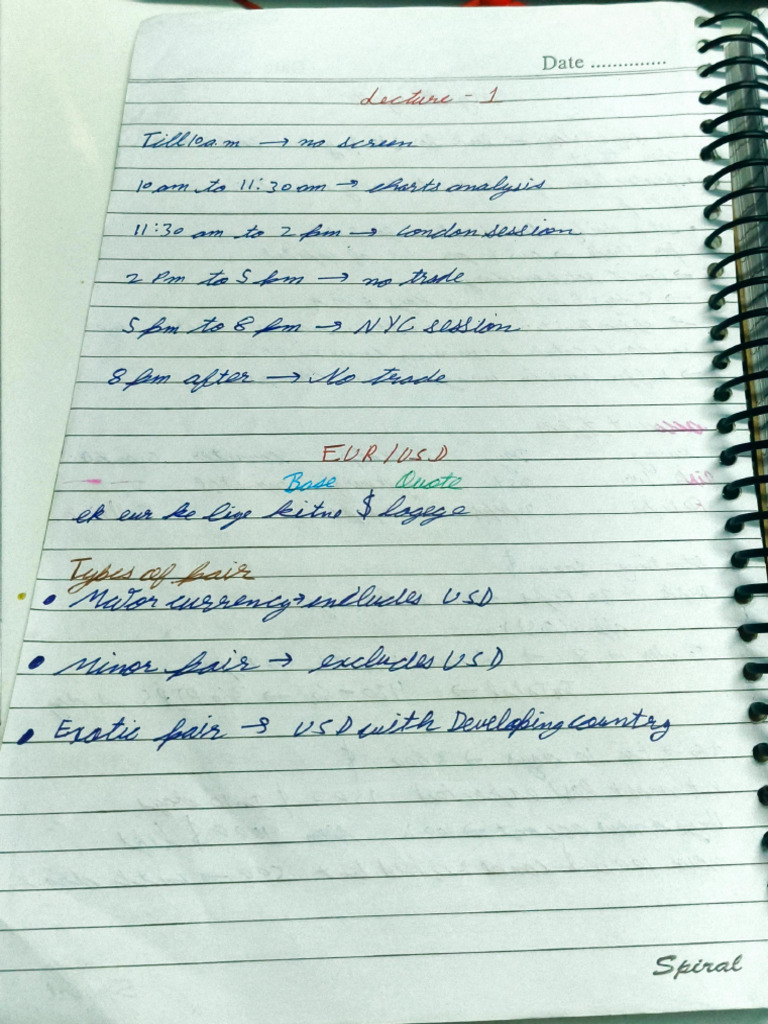 Date ..............
Lecture - 1
Till 10 a.m → no screen
10 am to 11:30 am → charts analysis
11:30 am to 2 pm → London session
2 Pm to 5 pm → no trade
5 pm to 8 pm → NYC session
8 pm after → No trade
EUR/USD
Base Quote
ek eur ke liye kitne $ lagege
Types of pair
• Major currency → includes USD
• Minor pair → excludes USD
• Exotic pair → USD with Developing country
Spiral